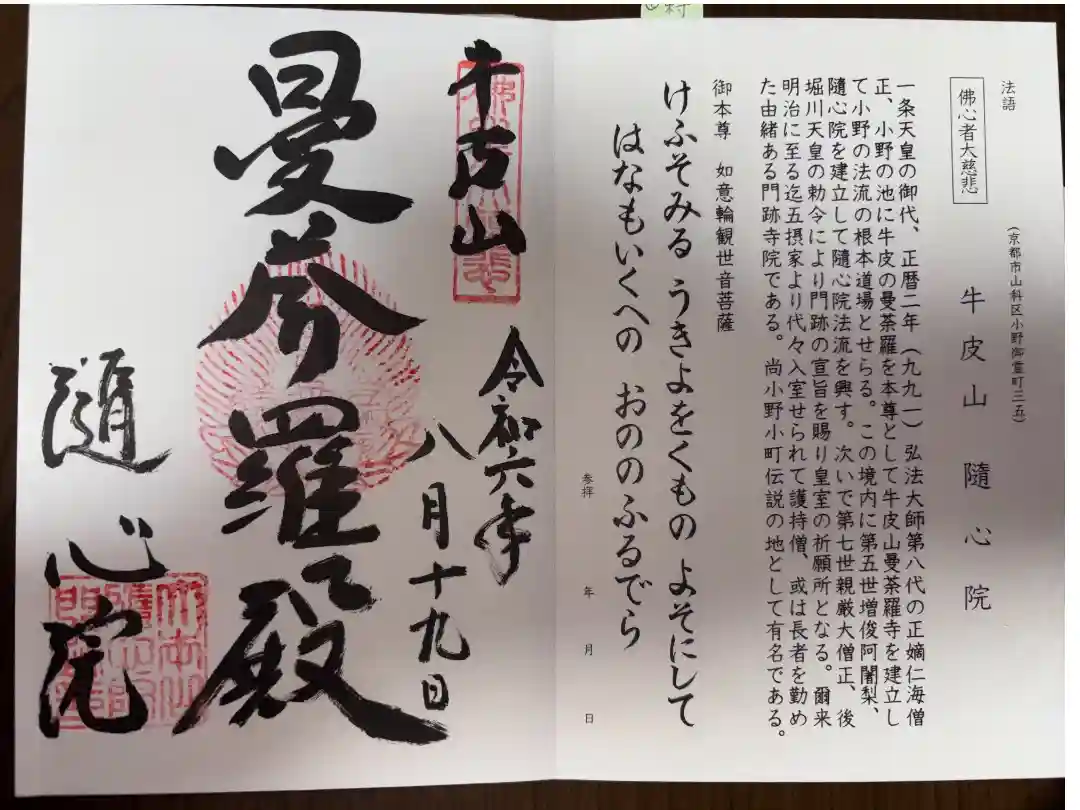 法語
(京都市山科区小野御霊町三五)
牛皮山 隨心院
佛心者大慈悲
一条天皇の御代、正暦二年(九九一)弘法大師第八代の正嫡仁海僧
正、小野の池に牛皮の曼荼羅を本尊として牛皮山曼荼羅寺を建立し
て小野の法流の根本道場とせらる。この境内に第五世増俊阿闍梨、
隨心院を建立して隨心院法流を興す。次いで第七世親厳大僧正、後
堀川天皇の勅令により門跡の宣旨を賜り皇室の祈願所となる。爾来
明治に至る迄五摂家より代々入室せられて護持僧、或は長者を勤め
た由緒ある門跡寺院である。尚小野小町伝説の地として有名である。
御本尊 如意輪観世音菩薩
けふそみる うきよをくもの よそにして
はなもいくへの おののふるでら
参拝 年 月 日
牛皮山
令和六年
八月十九日
曼荼羅殿
隨心院